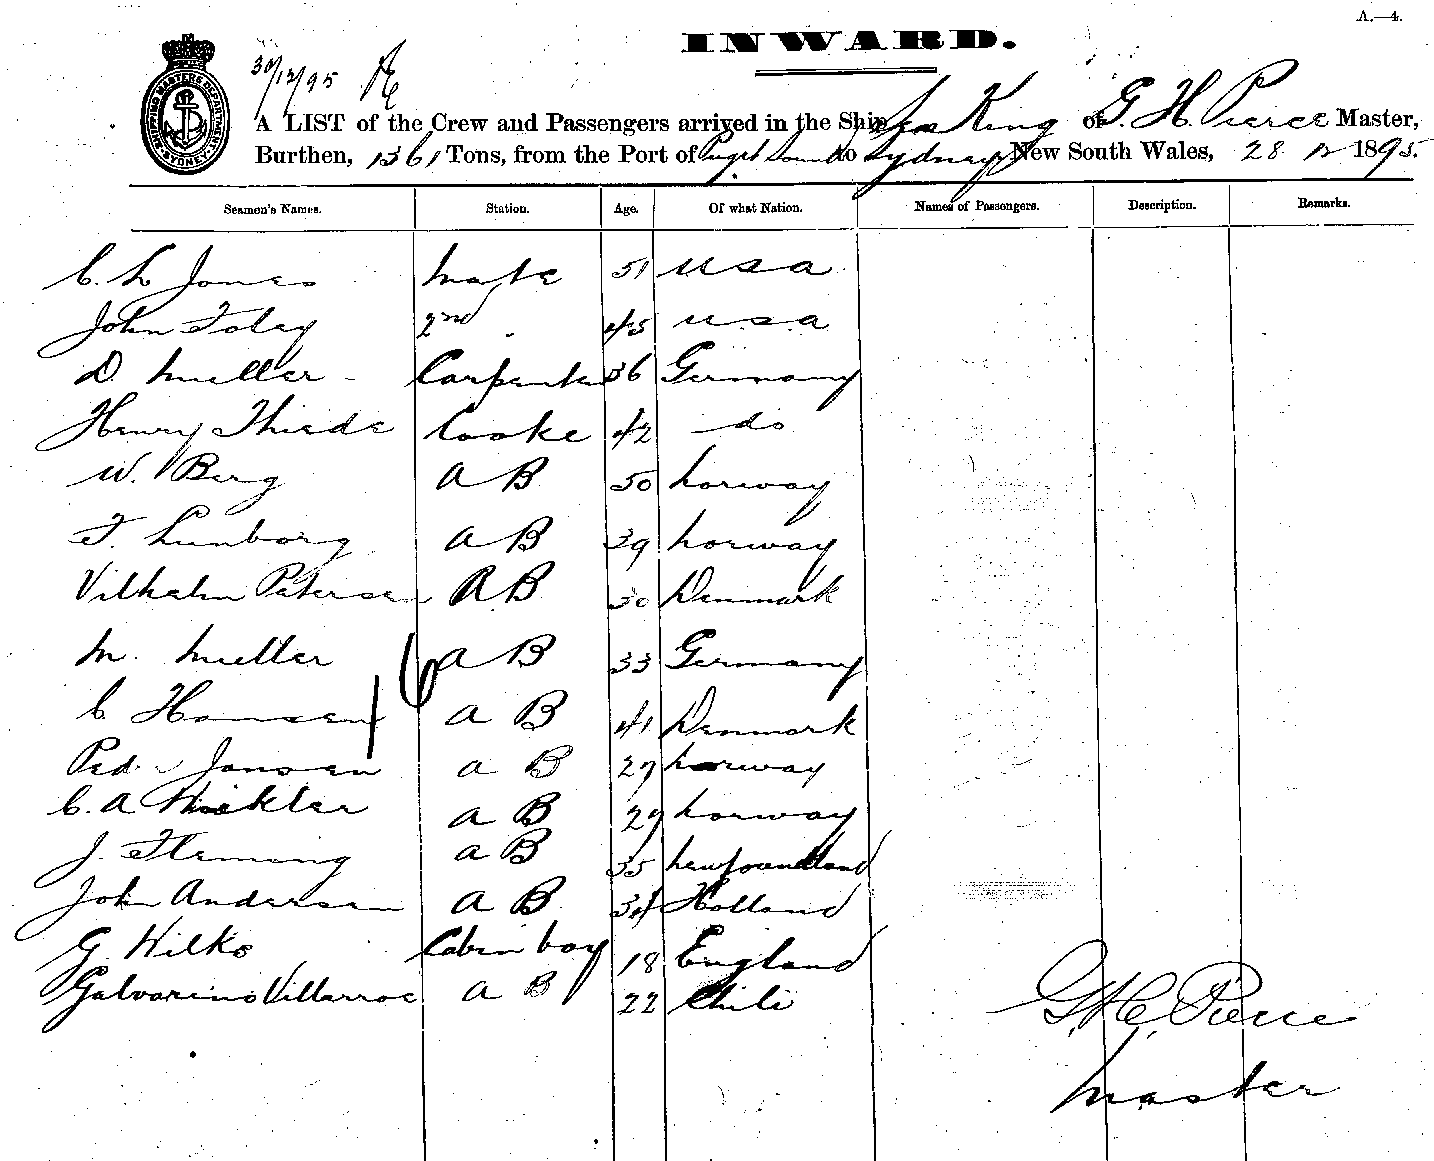 A.—4.
INWARD.
30/12/95
SHIPPING MASTERS DEPARTMENT SYDNEY
A LIST of the Crew and Passengers arrived in the Ship Sea King of G. H. Pierce Master,
Burthen, 1361 Tons, from the Port of Puget Sound to Sydney New South Wales, 28 12 1895.
Seamen's Names. Station. Age. Of what Nation. Names of Passengers. Description. Remarks.
C. L Jones Mate 51 U S A
John Foley 2nd 45 U.S.A
D. Mueller Carpenter 36 Germany
Henry Thiede Cooke 42 do
W. Berg A B 50 Norway
F. Lunborg A B 39 Norway
Vilhelm Petersen A B 30 Denmark
M. Mueller A B 33 Germany
C Hansen A B 41 Denmark
Jansen A B 27 Norway
C. A Winkler A B 29 Norway
J. Fleming A B 35 Newfoundland
John Andersen A B 34 Holland
G. Wilks Cabin boy 18 England
Galvarino Villarroe A B 22 Chili
G. H. Pierce
Master